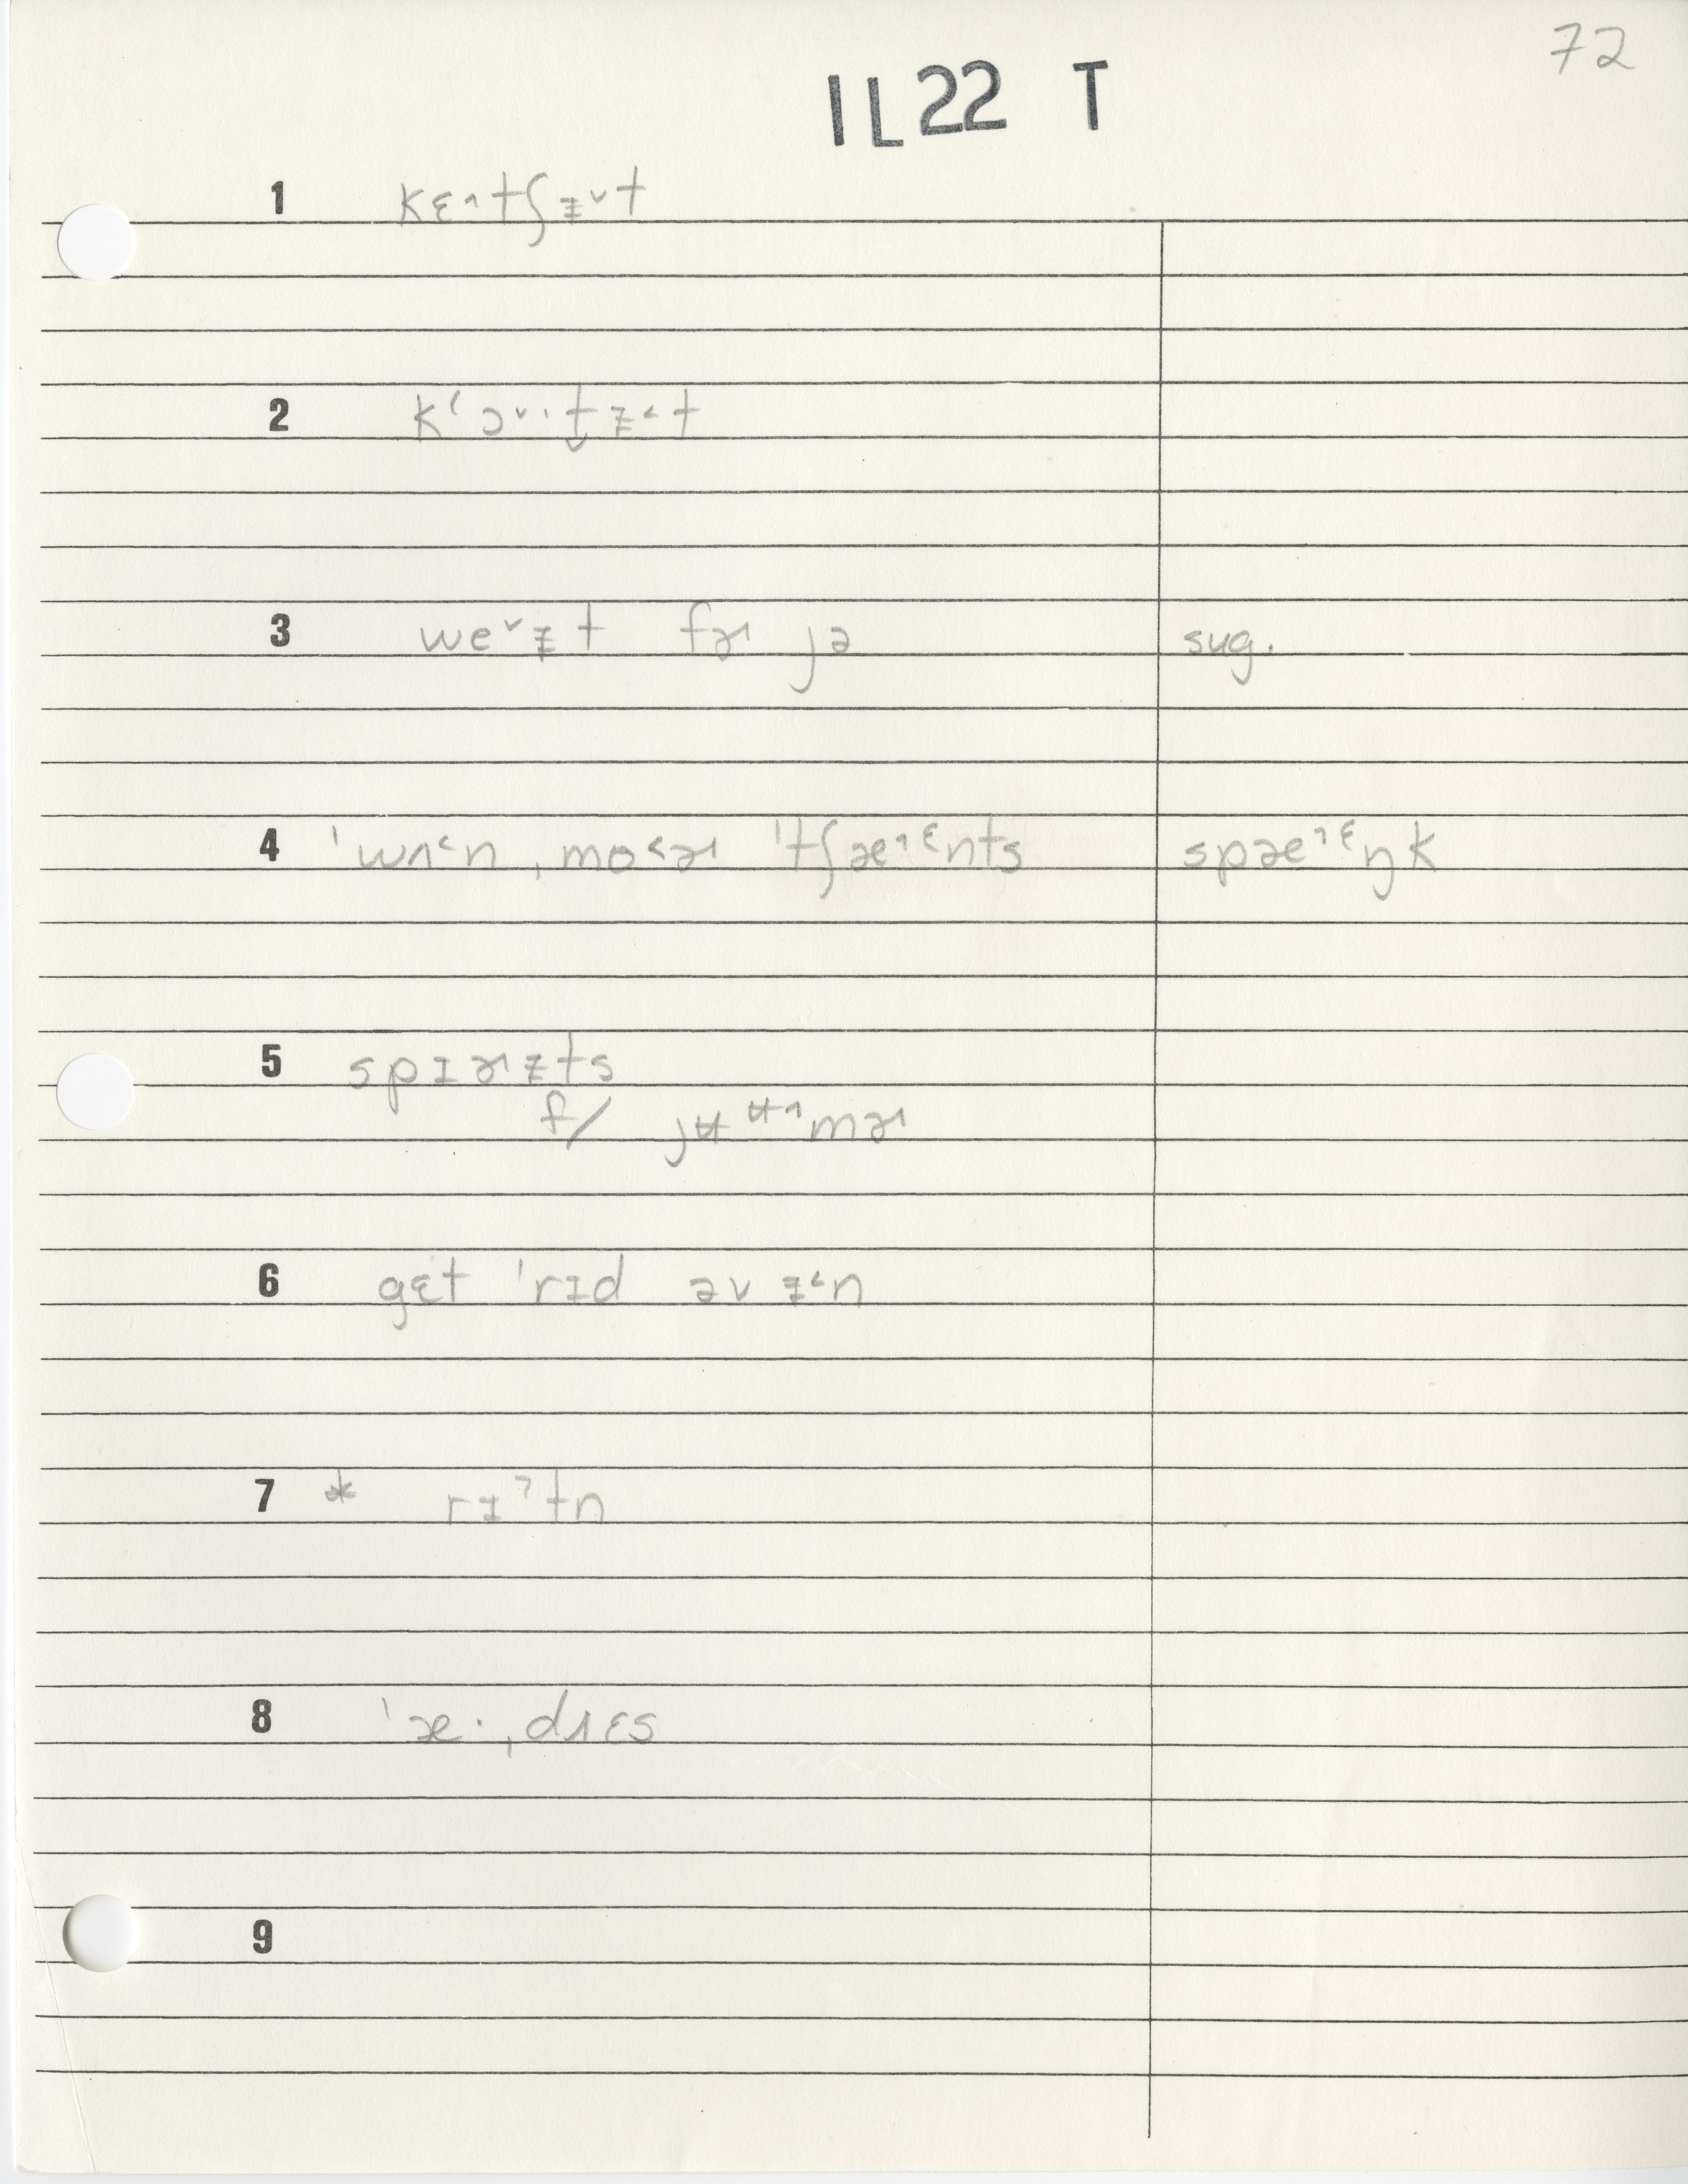 72
IL22 T
1 kɛ˄tʃᵻ˅t
2 kʻɔ˅·t̬ᵻ˂t
3 we˅ᵻt fɚ jə sug.
4 ˈwʌ˂n ˌmo˂ɚ ˈtʃæ˄ᵋnts spæ˄ᵋŋk
5 spɪɚᵻts
f/ jʉᵾ˄mɚ
6 gɛt ˈrɪd əv ᵻ˂n
7 * rɪˀtn
8 ˈæ·ˌdrɛs
9